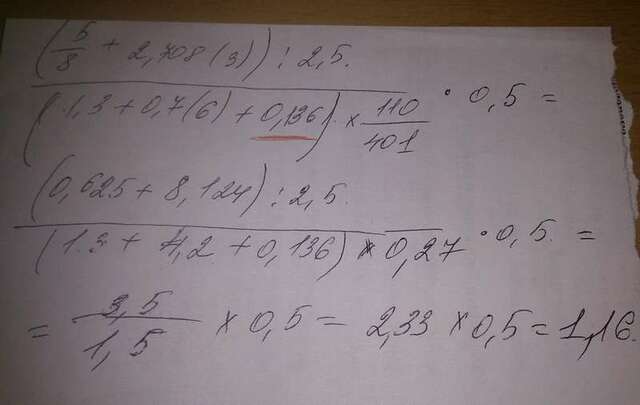 (5/8 + 2,708(3)) : 2,5.
(1,3 + 0,7(6) + 0,136) × 110/401 · 0,5 =
(0,625 + 8,124) : 2,5.
(1.3 + 4,2 + 0,136) × 0,27 · 0,5. =
= 3,5/1,5 × 0,5 = 2,33 × 0,5 = 1,16.